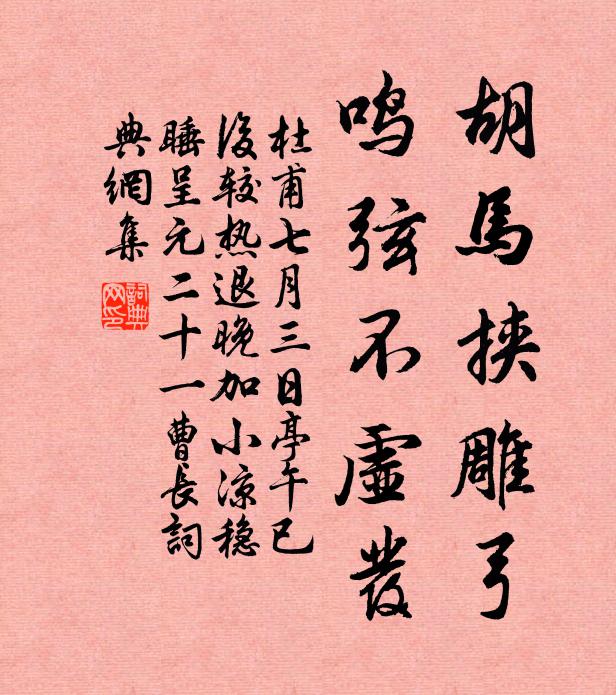 胡馬挟雕弓
鸣弦不虚發
杜甫七月三日亭午已
後较热退晚加小凉稳
睡呈元二十一曹长詞
典網集
詞典
网印